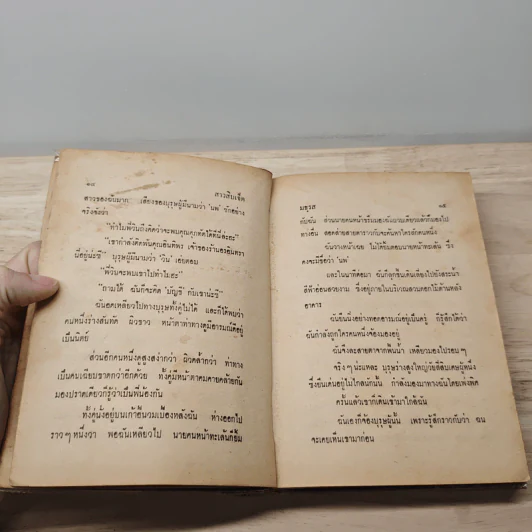 ๑๔
สารสิบเช็ด
อาวรของฉันมาก เสียงของบุรุษผู้มีนามว่า 'นพ' ซักอย่าง
จริงจังว่า
"ทำไมพี่วินถึงคิดว่าจะพบคุณกุกตัดได้ที่นี่ล่ะฮะ"
"เขากำลังติดพันคุณอินทิพร เจ้าของร้านอรอินทรา
นี่อยู่น่ะซี" บุรุษผู้มีนามว่า 'วิน' เอ่ยตอบ
"พี่วินจะพบเขาไปทำไมฮะ"
"ถามได้ ฉันก็จะคิด 'บัญชี' กับเขาน่ะซี"
ฉันอดเหลียวไปทางบุรุษทั้งคู่ไม่ได้ และก็ได้พบว่า
คนหนึ่งร่างสันทัด ผิวขาว หน้าตาท่าทางดูมีอารมณ์ดีอยู่
เป็นนิตย์
ส่วนอีกคนหนึ่งดูสูงสง่ากว่า ผิวคล้ำกว่า ท่าทาง
เป็นคนเฉียบขาดกว่าอีกด้วย ทั้งคู่มีหน้าตาคมคายคล้ายกัน
มองปราดเดียวก็รู้ว่าเป็นพี่น้องกัน
ทั้งคู่นั่งอยู่บนเก้าอี้นวมเบื้องหลังฉัน ห่างออกไป
ราวๆ หนึ่งวา พอฉันเหลียวไป นายคนหน้าทะเล้นก็ยิ้ม
มธุรส
๑๕
กับฉัน ส่วนนายคนหน้าขรึมมองฉันแวบเดียวแล้วก็มองไป
ทางอื่น สอดส่ายสายตาราวกับจะค้นหาใครสักคนหนึ่ง
ฉันวางหน้าเฉย ไม่ได้ยิ้มตอบนายหน้าทะเล้น ซึ่ง
คงจะมีชื่อว่า 'นพ'
และในนาทีต่อมา ฉันก็ลุกขึ้นเดินเลยไปยังสระน้ำ
สีฟ้าอ่อนสวยงาม ซึ่งอยู่ภายในบริเวณสวนดอกไม้ด้านหลัง
อาคาร
ฉันยืนนิ่งอย่างทอดอารมณ์อยู่เป็นครู่ ก็รู้สึกได้ว่า
ฉันกำลังถูกใครคนหนึ่งจ้องมองอยู่
ฉันจึงละสายตาจากพื้นน้ำ เหลียวมองไปรอบๆ
จริงๆ น่ะแหละ บุรุษร่างสูงใหญ่วัยยี่สิบเศษผู้หนึ่ง
ซึ่งยืนเด่นอยู่ไม่ไกลนักนั้น กำลังมองมาทางฉันโดยเพ่งพิศ
ครั้นแล้วเขาก็เดินเข้ามาใกล้ฉัน
ฉันเองก็จ้องบุรุษผู้นั้น เพราะรู้สึกราวกับว่า ฉัน
จะเคยเห็นเขามาก่อน